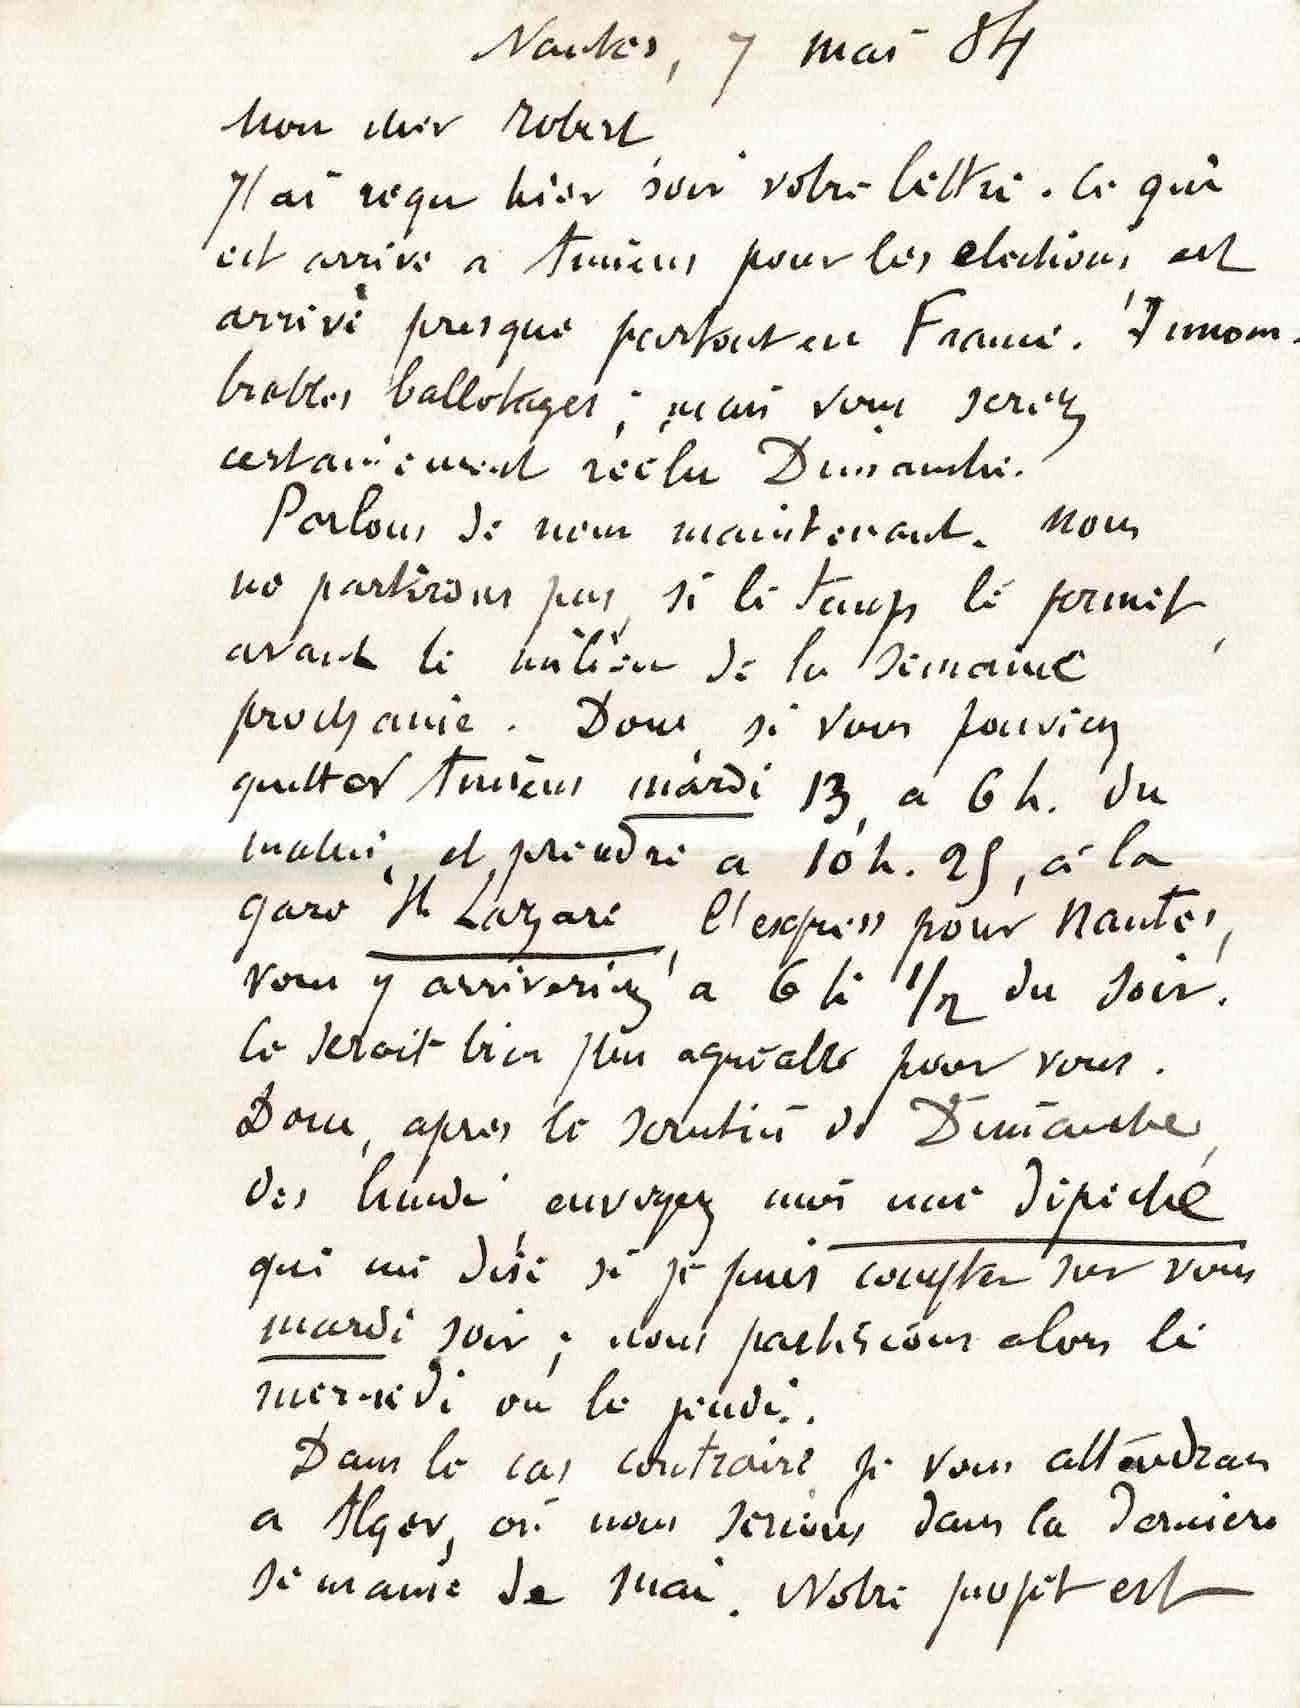 Nantes, 7 mai 84
Mon cher Robert
J'ai reçu hier soir votre lettre. Ce qui
est arrivé a Amiens pour les elections est
arrivé presque partout en France. Innom-
brables ballotages ; mais vous serez
certainement réélu Dimanche.
Parlons de nous maintenant. Nous
ne partirons pas, si le temps le permet,
avant le milieu de la semaine
prochaine. Donc, si vous pouviez
quitter Amiens mardi 13, a 6 h. du
matin, et prendre a 10 h. 25, à la
gare St Lazare, l'express pour Nantes,
vous y arriveriez a 6 h 1/2 du soir.
Ce serait bien plus agréable pour vous.
Donc, après le scrutin de Dimanche,
des lundi, envoyez moi une dépêche
qui me dise si je puis compter sur vous
mardi soir ; nous partirions alors le
mercredi ou le jeudi.
Dans le cas contraire je vous attendrais
a Alger, où nous serions dans la dernière
semaine de mai. Notre projet est